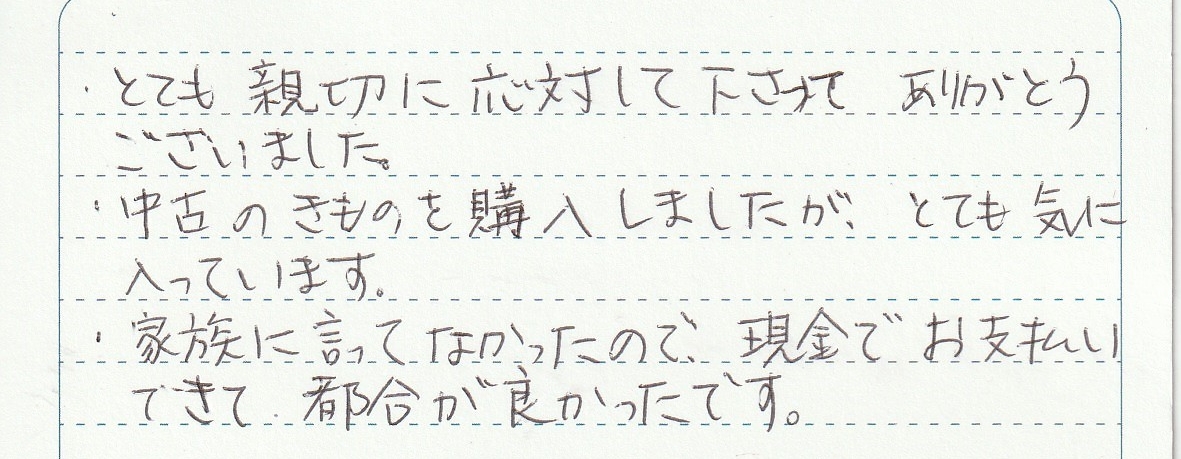 ・とても親切に応対して下さって ありがとう
ございました。
・中古のきものを購入しましたが、とても気に
入っています。
・家族に言ってなかったので、現金でお支払い
できて、都合が良かったです。